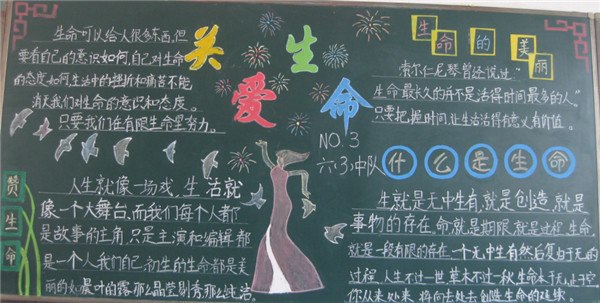 生命可以给人很多东西,但
要看自己的意识如何,自己对生命
的态度如何,生活中的挫折和痛苦不能
消灭我们对生命的意识和态度。
只要我们在有限生命里努力。
关爱
生命
NO.3
六(3)中队
生命的美丽
索尔仁尼琴曾经说过:“
生命最长久的并不是活得时间最多的人。”
只要把握时间,让生活活得有意义有价值。
赞生命
人生就像一场戏,生活就
像一个大舞台,而我们每个人都
是故事的主角,只是主演和编辑都
是一个人我们自己,初生的生命都是美
丽的如晨叶的露那么晶莹剔秀那么纯洁
什么是生命
生就是无中生有,就是创造,就是
事物的存在,命就是期限,就是过程,生命
就是一段有限的存在,一个无中生有然后复归于无的
过程,人生不过一世,草木不过一秋,生命本于无,止于空
你从来处来,将向去处去创造生命的延续